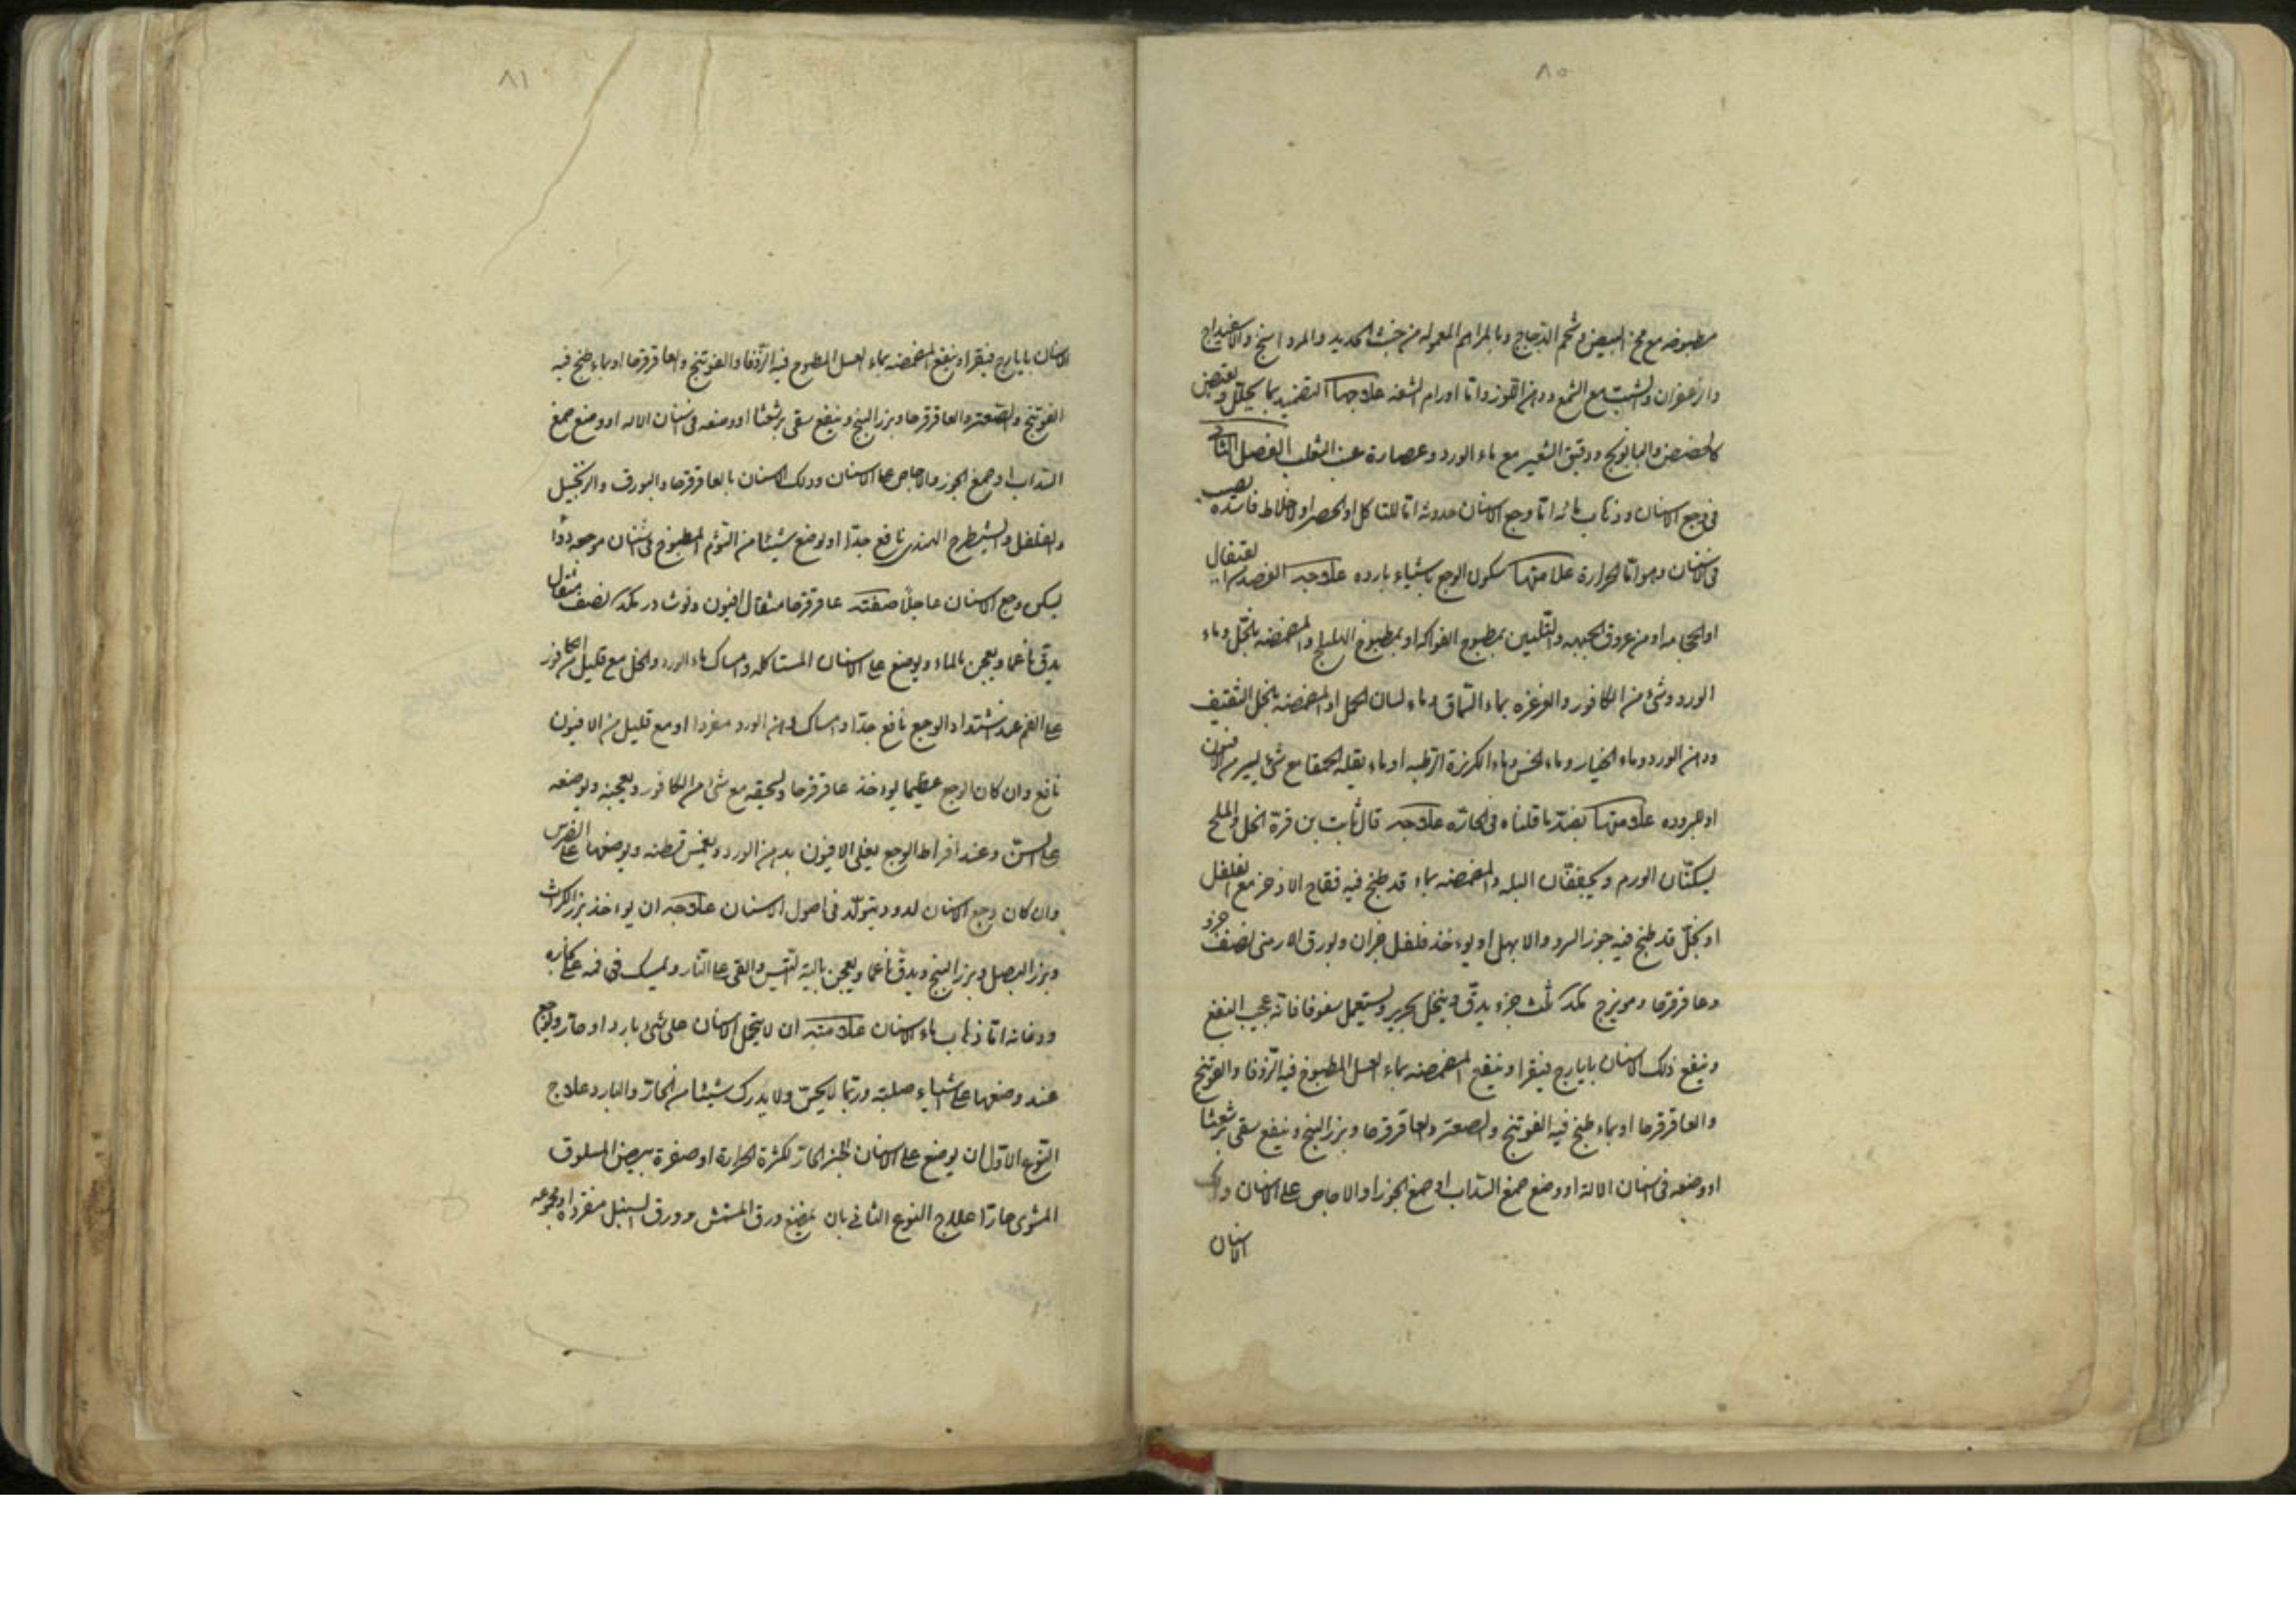 ٨٠
مطبوخه مع مخ البيض وشحم الدجاج وبالمراهم المعموله من خبث الحديد والمرداسنج والاسفيداج
والزعفران والشبت مع الشمع ودهن اللوز واما اورام الشفه علاجها التضميد بما يحلل ويقبض
كالحضض والبابونج ودقيق الشعير مع ماء الورد وعصارة عنب الثعلب الفصل الثاني
فى وجع الاسنان وذهاب مائه اما وجع الاسنان حدوثه اما للتاكل او الحصر او لاخلاط فاسده تصب
فى الاسنان وهو اما لحرارة علامتها سكون الوجع باشياء بارده علاجه الفصد من القيفال
او الحجامه او من عروق الجبهه والتليين بمطبوخ الفواكه او بمطبوخ الهليلج والمضمضه بالخل وماء
الورد وشئ من الكافور والغرغره بماء السماق وماء لسان الحمل او المضمضه بالخل الثقيف
ودهن الورد وماء الخيار وماء الخس وماء الكزبرة الرطبه او ماء بقله الحمقا مع شئ يسير من الافيون
او لبروده علامتها بضد ما قلناه فى الحاره علاجه قال ثابت بن قرة الخل والملح
يسكنان الورم ويجففان البله والمضمضه بماء قد طبخ فيه فقاح الاذخر مع الفلفل
او بخل قد طبخ فيه جوز السرو والابهل او يوءخذ فلفل جزان وبورق الارمنى نصف جزو
وعاقرقرحا ومويزج مكد ثلث جزء يدق وينخل بحرير ويستعمل سفوفا فانه عجيب النفع
وينفع ذلك الاسنان بايارج فيقرا وينفع المضمضه بماء العسل المطبوخ فيه الزوفا والفوتنج
والعاقرقرحا او بماء طبخ فيه الفوتنج والصعتر والعاقرقرحا وبزر البنج وينفع سقى برشعثا
او وضعه فى اسنان الاله او وضع صمغ السذاب او صمغ الجوز او الاجاص على الاسنان ودلك
الاسنان
٨١
الاسنان بايارج فيقرا وينفع المضمضه بماء العسل المطبوخ فيه الزوفا والفوتنج والعاقرقرحا او بماء طبخ فيه
الفوتنج والصعتر والعاقرقرحا وبزر البنج وينفع سقى برشعثا او وضعه فى اسنان الاله او وضع صمغ
السذاب او صمغ الجوز والاجاص على الاسنان ودلك الاسنان بالعاقرقرحا والبورق والزنجبيل
والفلفل والشيطرج الهندى نافع جدا او يوضع شيئا من الثوم المطبوخ فى اسنان موجعه دوا
يسكن وجع الاسنان عاجلا صفته عاقرقرحا مثقال افيون ونوشادر مكد نصف مثقال
يدق ناعما ويعجن بالماء ويوضع على الاسنان المتاكله وامساك ماء الورد والخل مع قليل من الكافور
على الفم عند اشتداد الوجع نافع جدا وامساك دهن الورد مفردا او مع قليل من الافيون
نافع وان كان الوجع عظيما يوءخذ عاقرقرحا ويسحقه مع شئ من الكافور ويعجنه ويوضعه
على السن وعند افراط الوجع يغلى الافيون بدهن الورد ويغمس قطنه ويوضعها على الضرس
وان كان وجع الاسنان لدود يتولد فى اصول الاسنان علاجه ان يوءخذ بزر الكراث
وبزر البصل وبزر البنج ويدق ناعما ويعجن بالية التيس والقى على النار ويمسك فى فمه على بخاره
ودخانه اما ذهاب ماء الاسنان علامته ان لا يتحمل الاسنان على شئ بارد او حار ويوجع
عند وضعها على اشياء صلبة وربما لا يحس ولا يدرك شيئا من الحار والبارد علاج
النوع الاول ان يوضع على الاسنان الخبز الحار لكثرة الحرارة او صفرة بيض المسلوق
المشوى حارا علاج النوع الثانى بان يمضغ ورق المشمش وورق السنبل مفردا او مجموعه